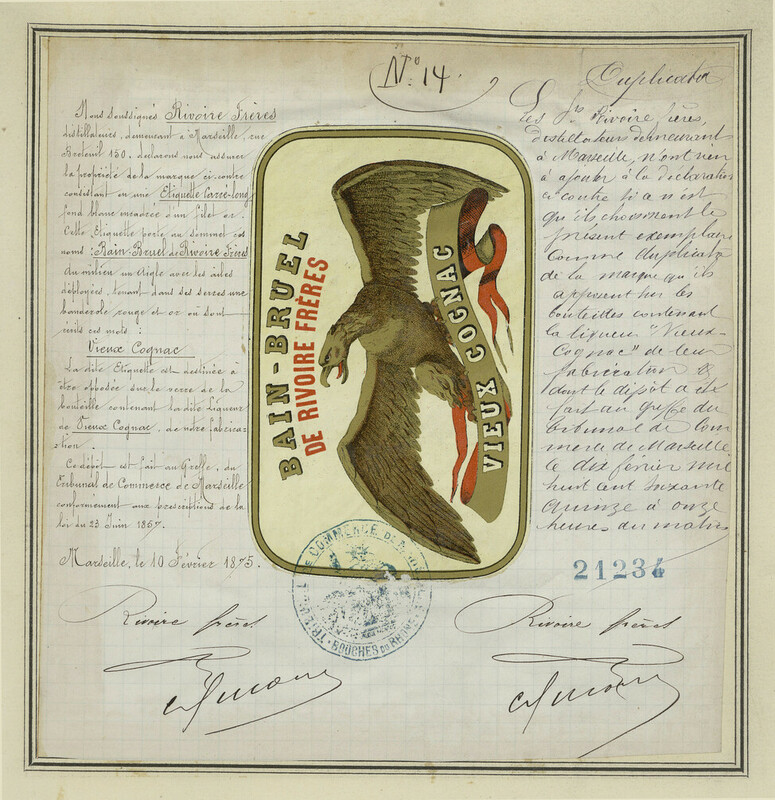 N° 14
Duplicata
Nous soussignés Rivoire Frères
distillateurs, demeurant à Marseille, rue
Breteuil 130, déclarons nous assurer
la propriété de la marque ci contre
consistant en une Etiquette Carré-long
fond blanc encadrée d'un filet or.
Cette Etiquette porte au sommet ces
noms : Bain-Bruel de Rivoire Frères
Au milieu un Aigle avec les ailes
déployées, tenant dans ses serres une
banderole rouge et or où sont
écrits ces mots :
Vieux Cognac
La dite Etiquette est destinée à
être apposée sur le verre de la
bouteille contenant la dite Liqueur
de Vieux Cognac, de notre fabrica-
tion.
Ce dépôt est fait au Greffe, du
Tribunal de Commerce de Marseille
conformément aux prescriptions de la
loi du 23 Juin 1857.
Marseille, le 10 Février 1875.
BAIN-BRUEL
DE RIVOIRE FRÈRES
VIEUX COGNAC
Les Srs Rivoire frères,
distillateurs demeurant
à Marseille, n'ont rien
à ajouter à la déclaration
ci contre si ce n'est
que ils choisissent le
présent exemplaire
comme duplicata
de la marque qu'ils
apposent sur les
bouteilles contenant
la liqueur "Vieux-
Cognac" de leur
fabrication &
dont le dépôt a été
fait au greffe du
tribunal de Com
merce de Marseille
le dix février mil
huit cent soixante
quinze à onze
heures du matin
21234
TRIBUNAL DE COMMERCE DE
BOUCHES DU RHONE
Rivoire frères
Rivoire frères